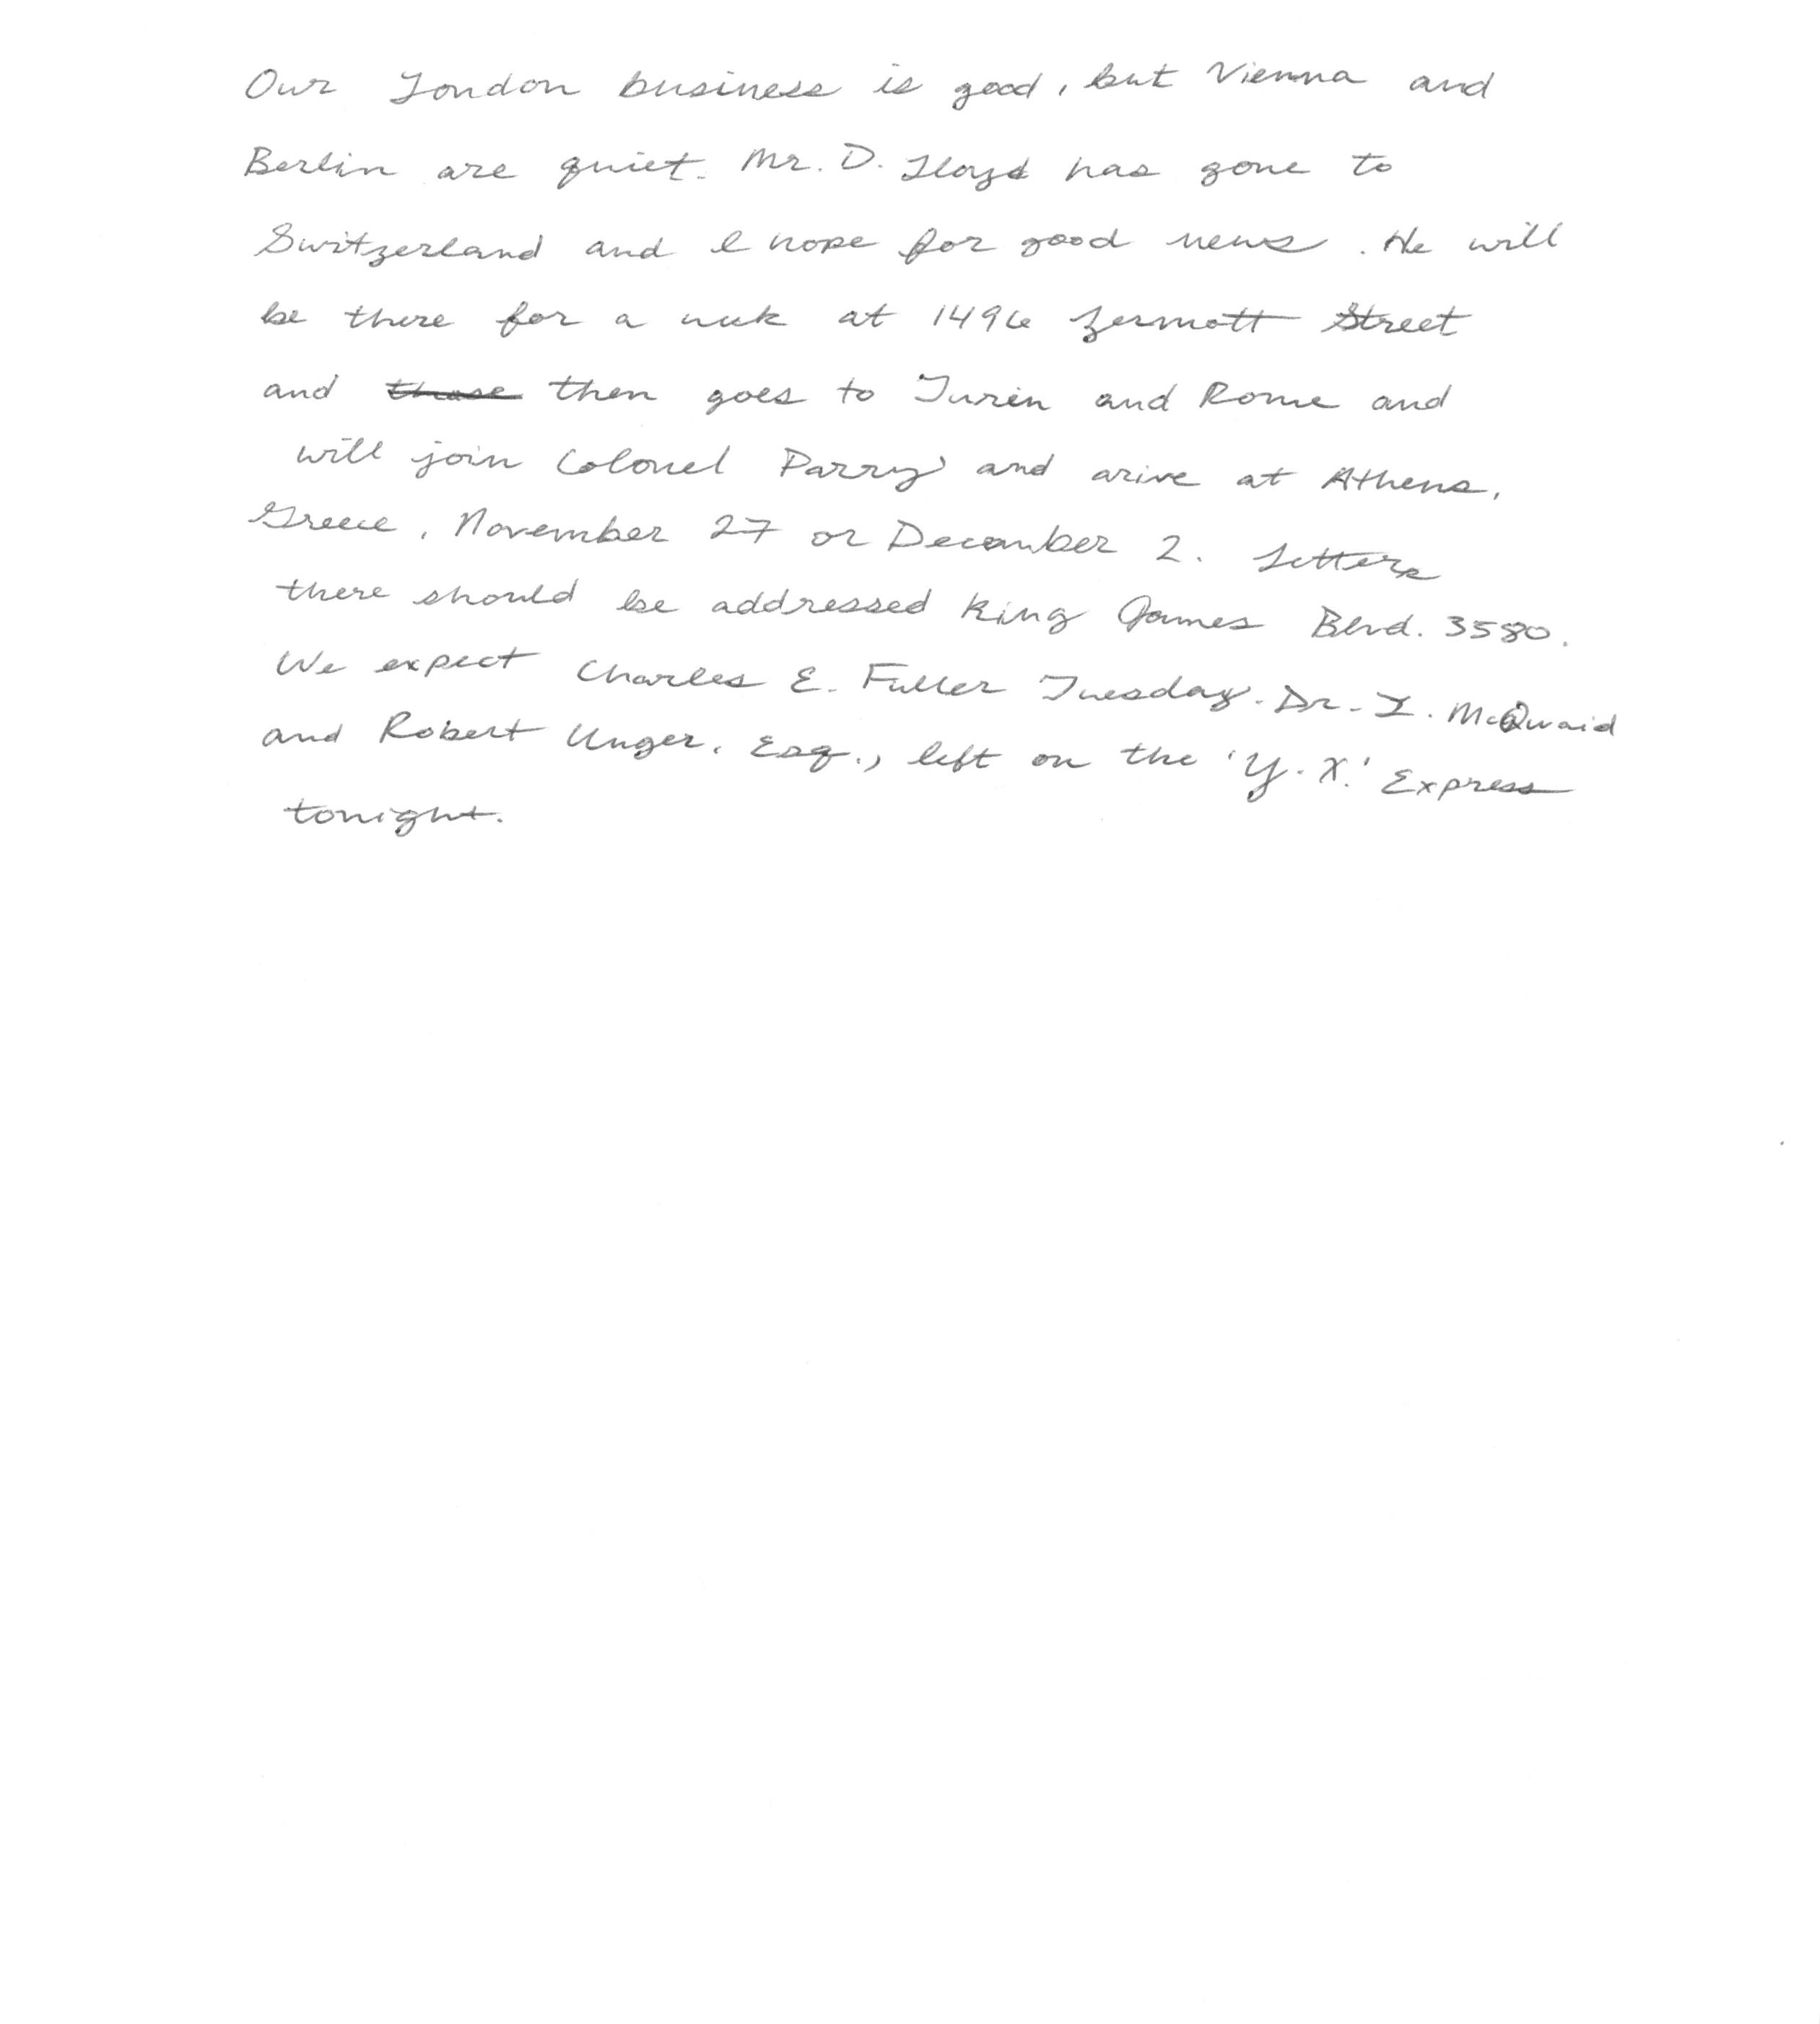 Our London business is good, but Vienna and
Berlin are quiet. Mr. D. Lloyd has gone to
Switzerland and I hope for good news. He will
be there for a week at 1496 Zermott Street
and then goes to Turin and Rome and
will join Colonel Parry and arive at Athens,
Greece, November 27 or December 2. Letters
there should be addressed King James Blvd. 3580.
We expect Charles E. Fuller Tuesday. Dr. L. McQuaid
and Robert Unger, Esq., left on the 'Y. X.' Express
tonight.